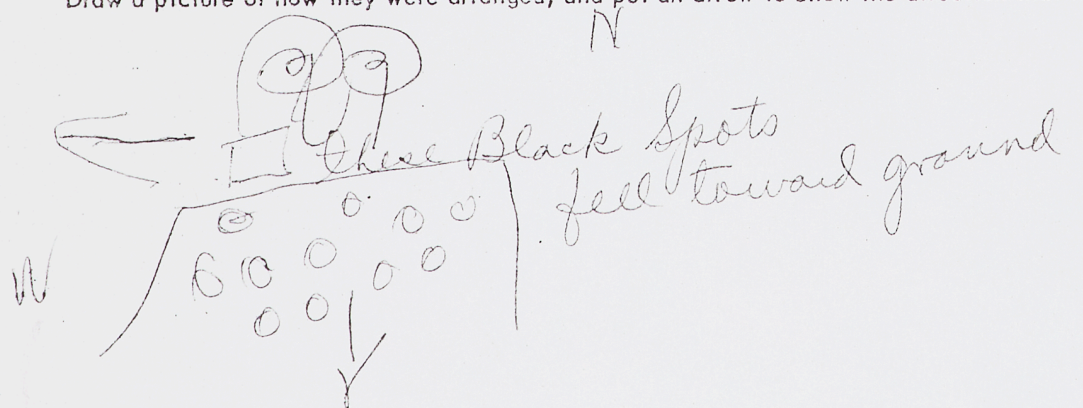 Draw a picture of how they were arranged, and put an arrow to show the
N
these Black Spots
fell toward ground
W